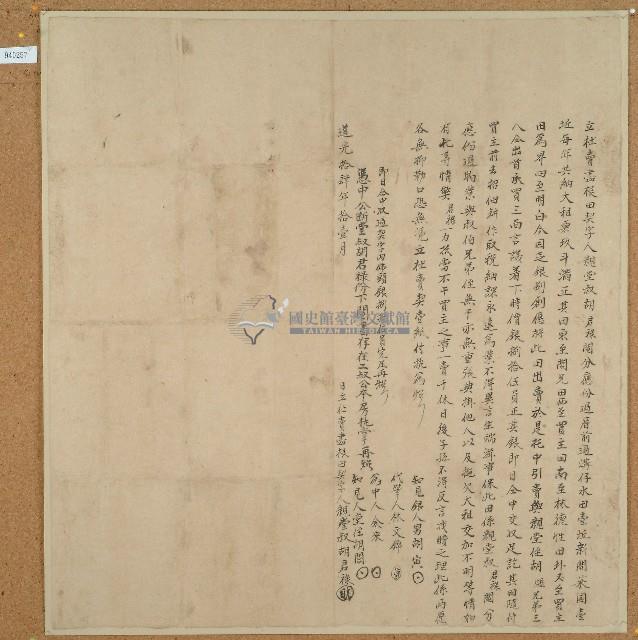 立杜賣盡根田契字人親堂叔胡君祿鬮分應份過厝前過溝仔水田壹坵新開菜園壹
坵每年共納大租粟玖斗滿正其田東至開兄田西至買主田南至林德性田北至買主
田為界四至明白今因乏銀別創愿將此田出賣於是托中引賣與親堂侄胡 兄弟三
人合出首承買三面言議著下時價銀捌拾伍員正其銀即日仝中交收足訖其田隨付
買主前去招佃耕作收稅納課永遠為業不得異言生端滋事保此田係親堂叔君祿鬮分
應份過物業與叔伯兄弟侄無干亦無重張典掛他人以及拖欠大租交加不明等情如
有此等情弊君祿一力抵當不干買主之事一賣千休日後子孫不得反言找贖之理此係兩愿
各無抑勒口恐無憑立杜賣契壹紙付執為炤
即日仝中收過契字內佛頭銀捌拾伍員完足再炤
憑中公斷堂叔胡君祿份下 存在二叔公奉房執掌再炤
知見銀人男胡寅
代筆人林文
為中人余來
知見人堂侄胡開
道光拾肆年拾壹月 日立杜賣盡根田契字人親堂叔胡君祿
國史館臺灣文獻館
TAIWAN HISTORICA
940257